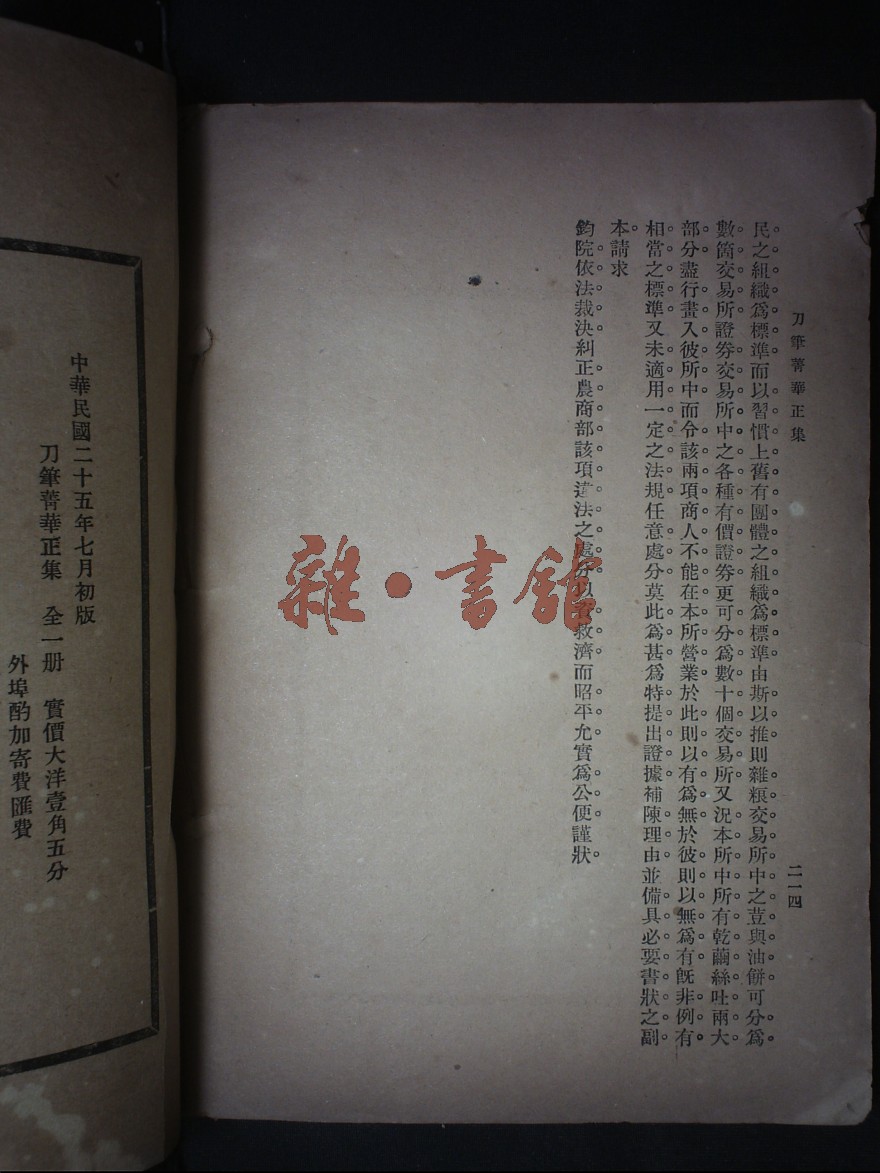 刀筆菁華正集
二一四
民之組織爲標準而以習慣上舊有團體之組織爲標準由斯以推則雜粮交易所中之荳與油餅可分爲
數箇交易所證劵交易所中之各種有價證劵更可分爲數十個交易所又況本所中所有乾繭絲吐兩大
部分盡行畫入彼所中而令該兩項商人不能在本所營業於此則以有爲無於彼則以無爲有旣非例有
相當之標準又未適用一定之法規任意處分莫此爲甚爲特提出證據補陳理由並備具必要書狀之副
本請求
鈞院依法裁決糾正農商部該項違法之處分以救濟而昭平允實爲公便謹狀
雜·書館
中華民國二十五年七月初版
刀筆菁華正集 全一册 實價大洋壹角五分
外埠酌加寄費匯費